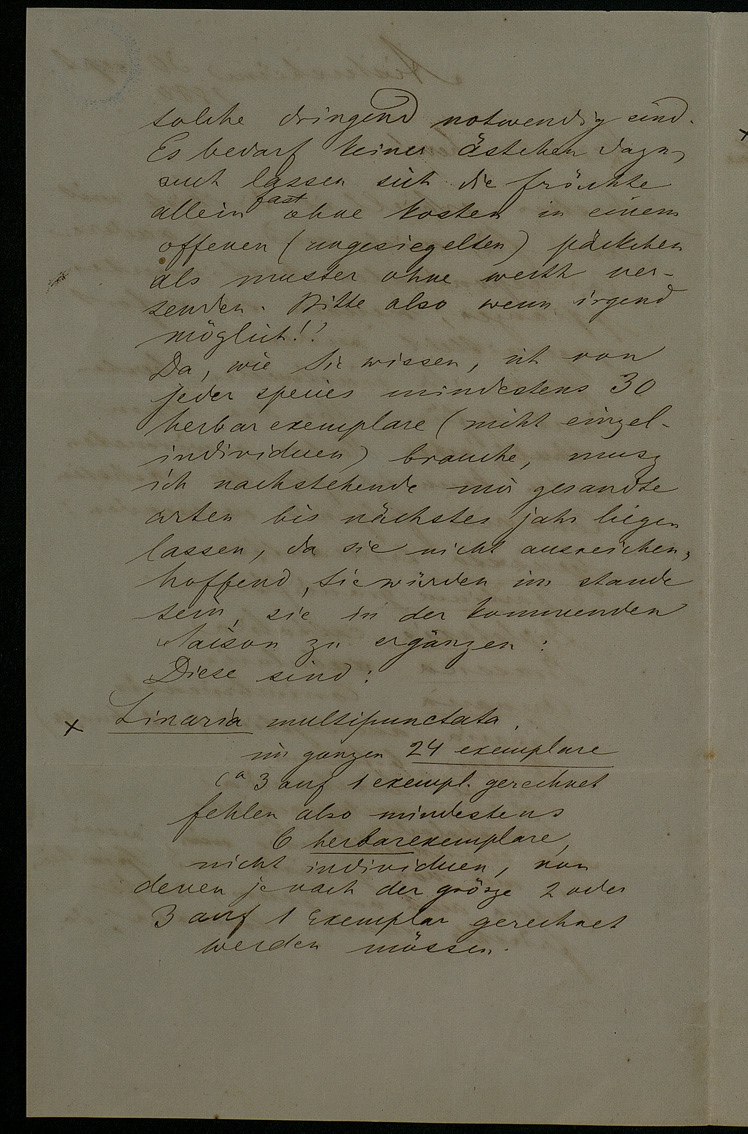 solche dringend notwendig sind.
Es bedarf keiner ästchen dazu,
auch lassen sich die früchte
allein fast ohne kosten in einem
offenen (ungesiegelten) päckchen
als muster ohne werth ver-
senden. Bitte also wenn irgend
möglich!!
Da, wie Sie wissen, ich von
jeder species mindestens 30
herbarexemplare (nicht einzel-
individuen) brauche, musz
ich nachstehende mir gesandte
arten bis nächstes jahr liegen
lassen, da sie nicht ausreichen,
hoffend, Sie würden im stande
sein, sie in der kommenden
Saison zu ergänzen:
Diese sind:
x Linaria multipunctata,
im ganzen 24 exemplare
ca 3 auf 1 exempl. gerechnet
fehlen also mindestens
6 herbarexemplare,
nicht individuen, von
denen je nach der grösze 2 oder
3 auf 1 Exemplar gerechnet
werden müssen.